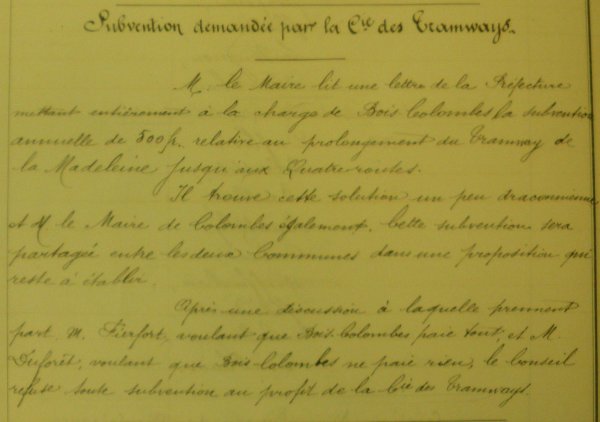 Subvention demandée par la Cie des Tramways.
M. le Maire lit une lettre de la Préfecture
mettant entièrement à la charge de Bois Colombes la subvention
annuelle de 500f. relative au prolongement du Tramway de
la Madeleine jusqu'aux Quatre-routes.
Il trouve cette solution un peu draconnienne
et M le Maire de Colombes également. Cette subvention sera
partagée entre les deux Communes dans une proposition qui
reste à établir.
Après une discussion à laquelle prennent
part M. Fierfort, voulant que Bois-Colombes paie tout, et M.
Duforêt, voulant que Bois-Colombes ne paie rien, le Conseil
refuse toute subvention au profit de la Cie des Tramways.